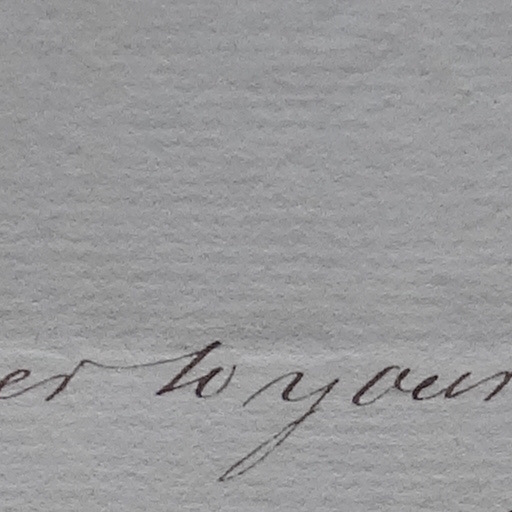 er to your